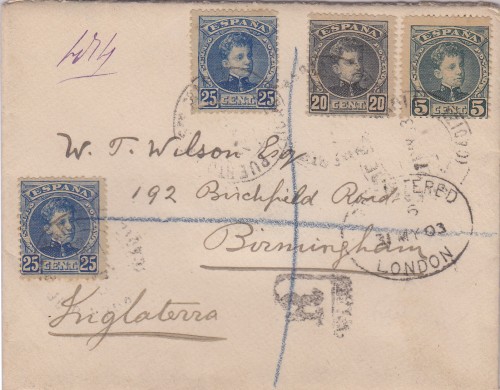 ESPAÑA
25 CENT. 25
ESPAÑA
20 CENT. 20
ESPAÑA
5 CENT. 5
W. T. Wilson Esq
192 Birchfield Road
Birmingham
Inglaterra
ESPAÑA
25 CENT. 25
REGISTERED
MY 03
LONDON
R